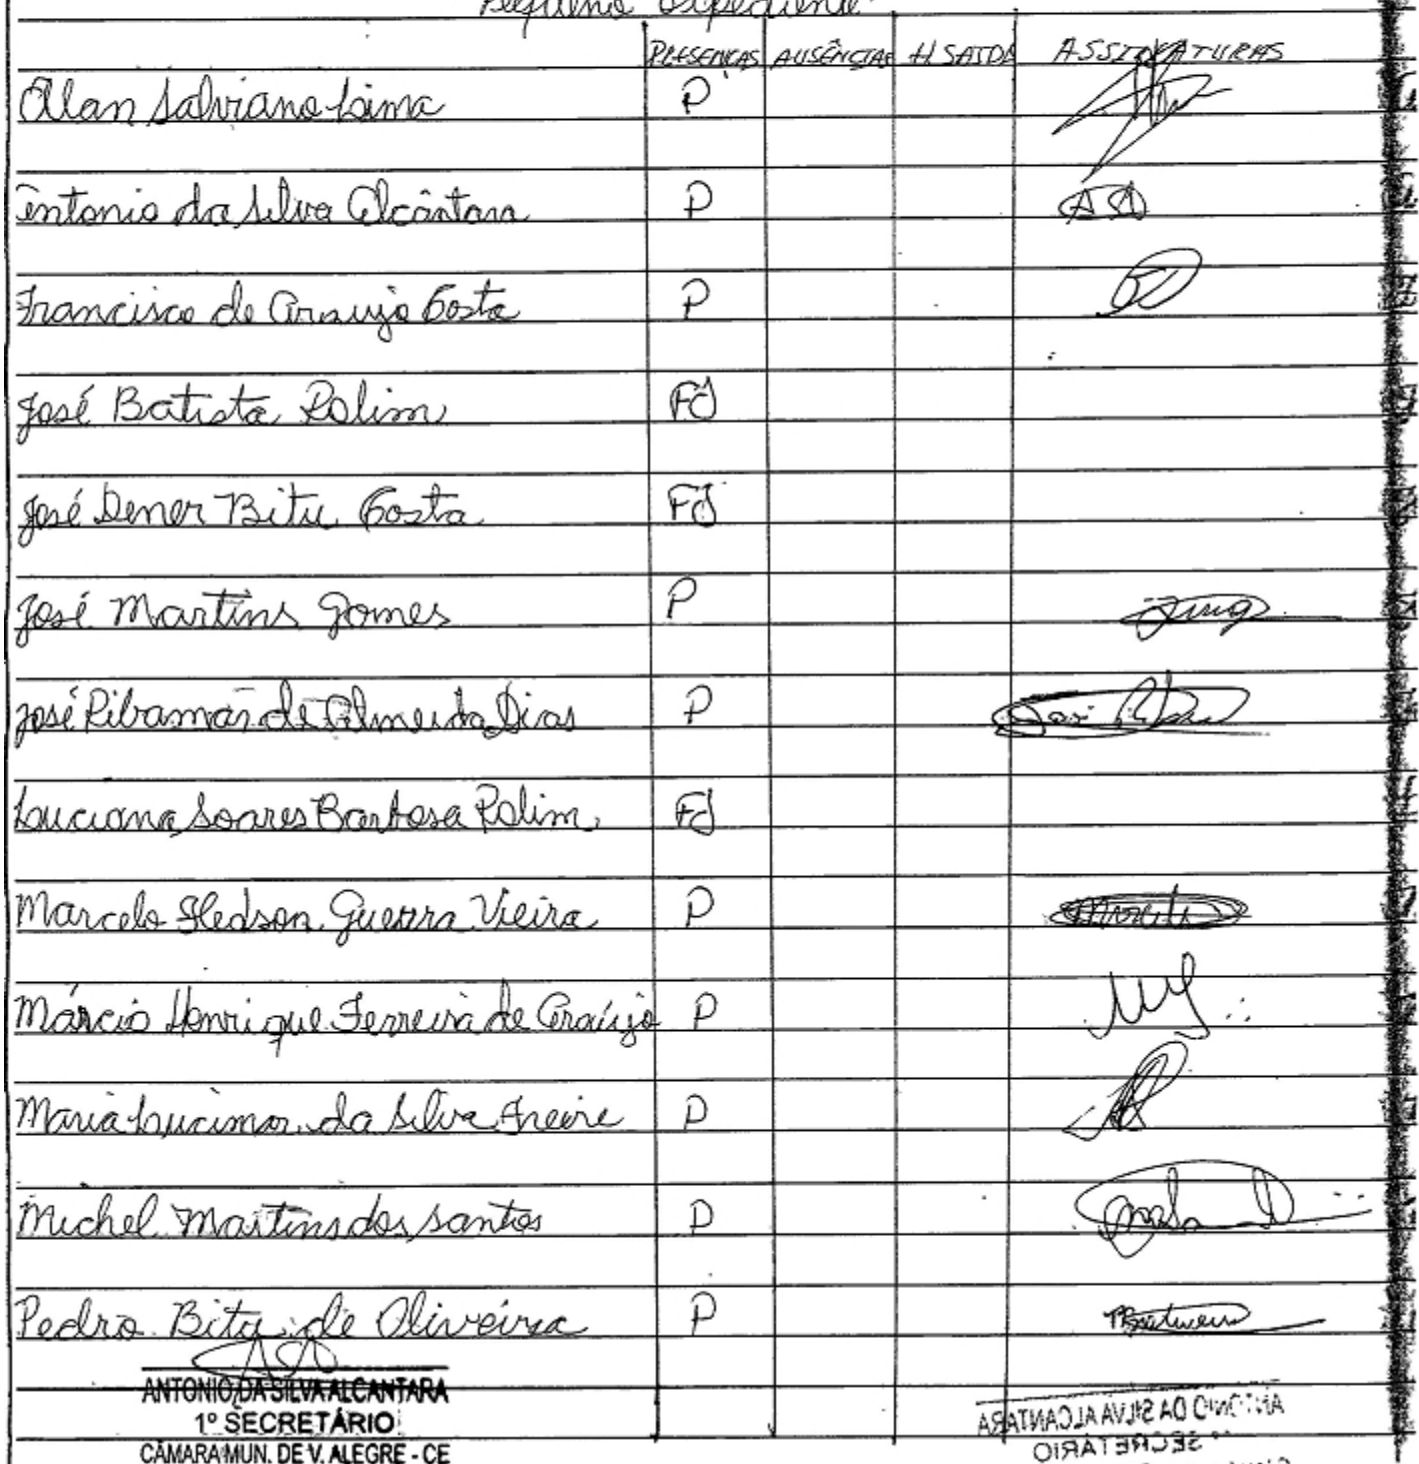 Pequeno Expediente
PRESENÇAS AUSÊNCIAS H SAIDA ASSINATURAS
Alan Salviano Lima P
Antonio da Silva Alcântara P
Francisco de Araujo Costa P
José Batista Rolim FJ
José Dener Bitu Costa FJ
José Martins Gomes P
José Ribamar de Almeida Dias P
Luciana Soares Barbosa Rolim FJ
Marcelo Hedson Guerra Vieira P
Márcio Henrique Ferreira de Araújo P
Maria Lucimar da Silva Freire P
Michel Martins dos Santos P
Pedro Bitu de Oliveira P
ANTONIO DA SILVA ALCANTARA
1º SECRETÁRIO
CÂMARA MUN. DE V. ALEGRE - CE
ANTONIO DA SILVA ALCANTARA
SECRETÁRIO